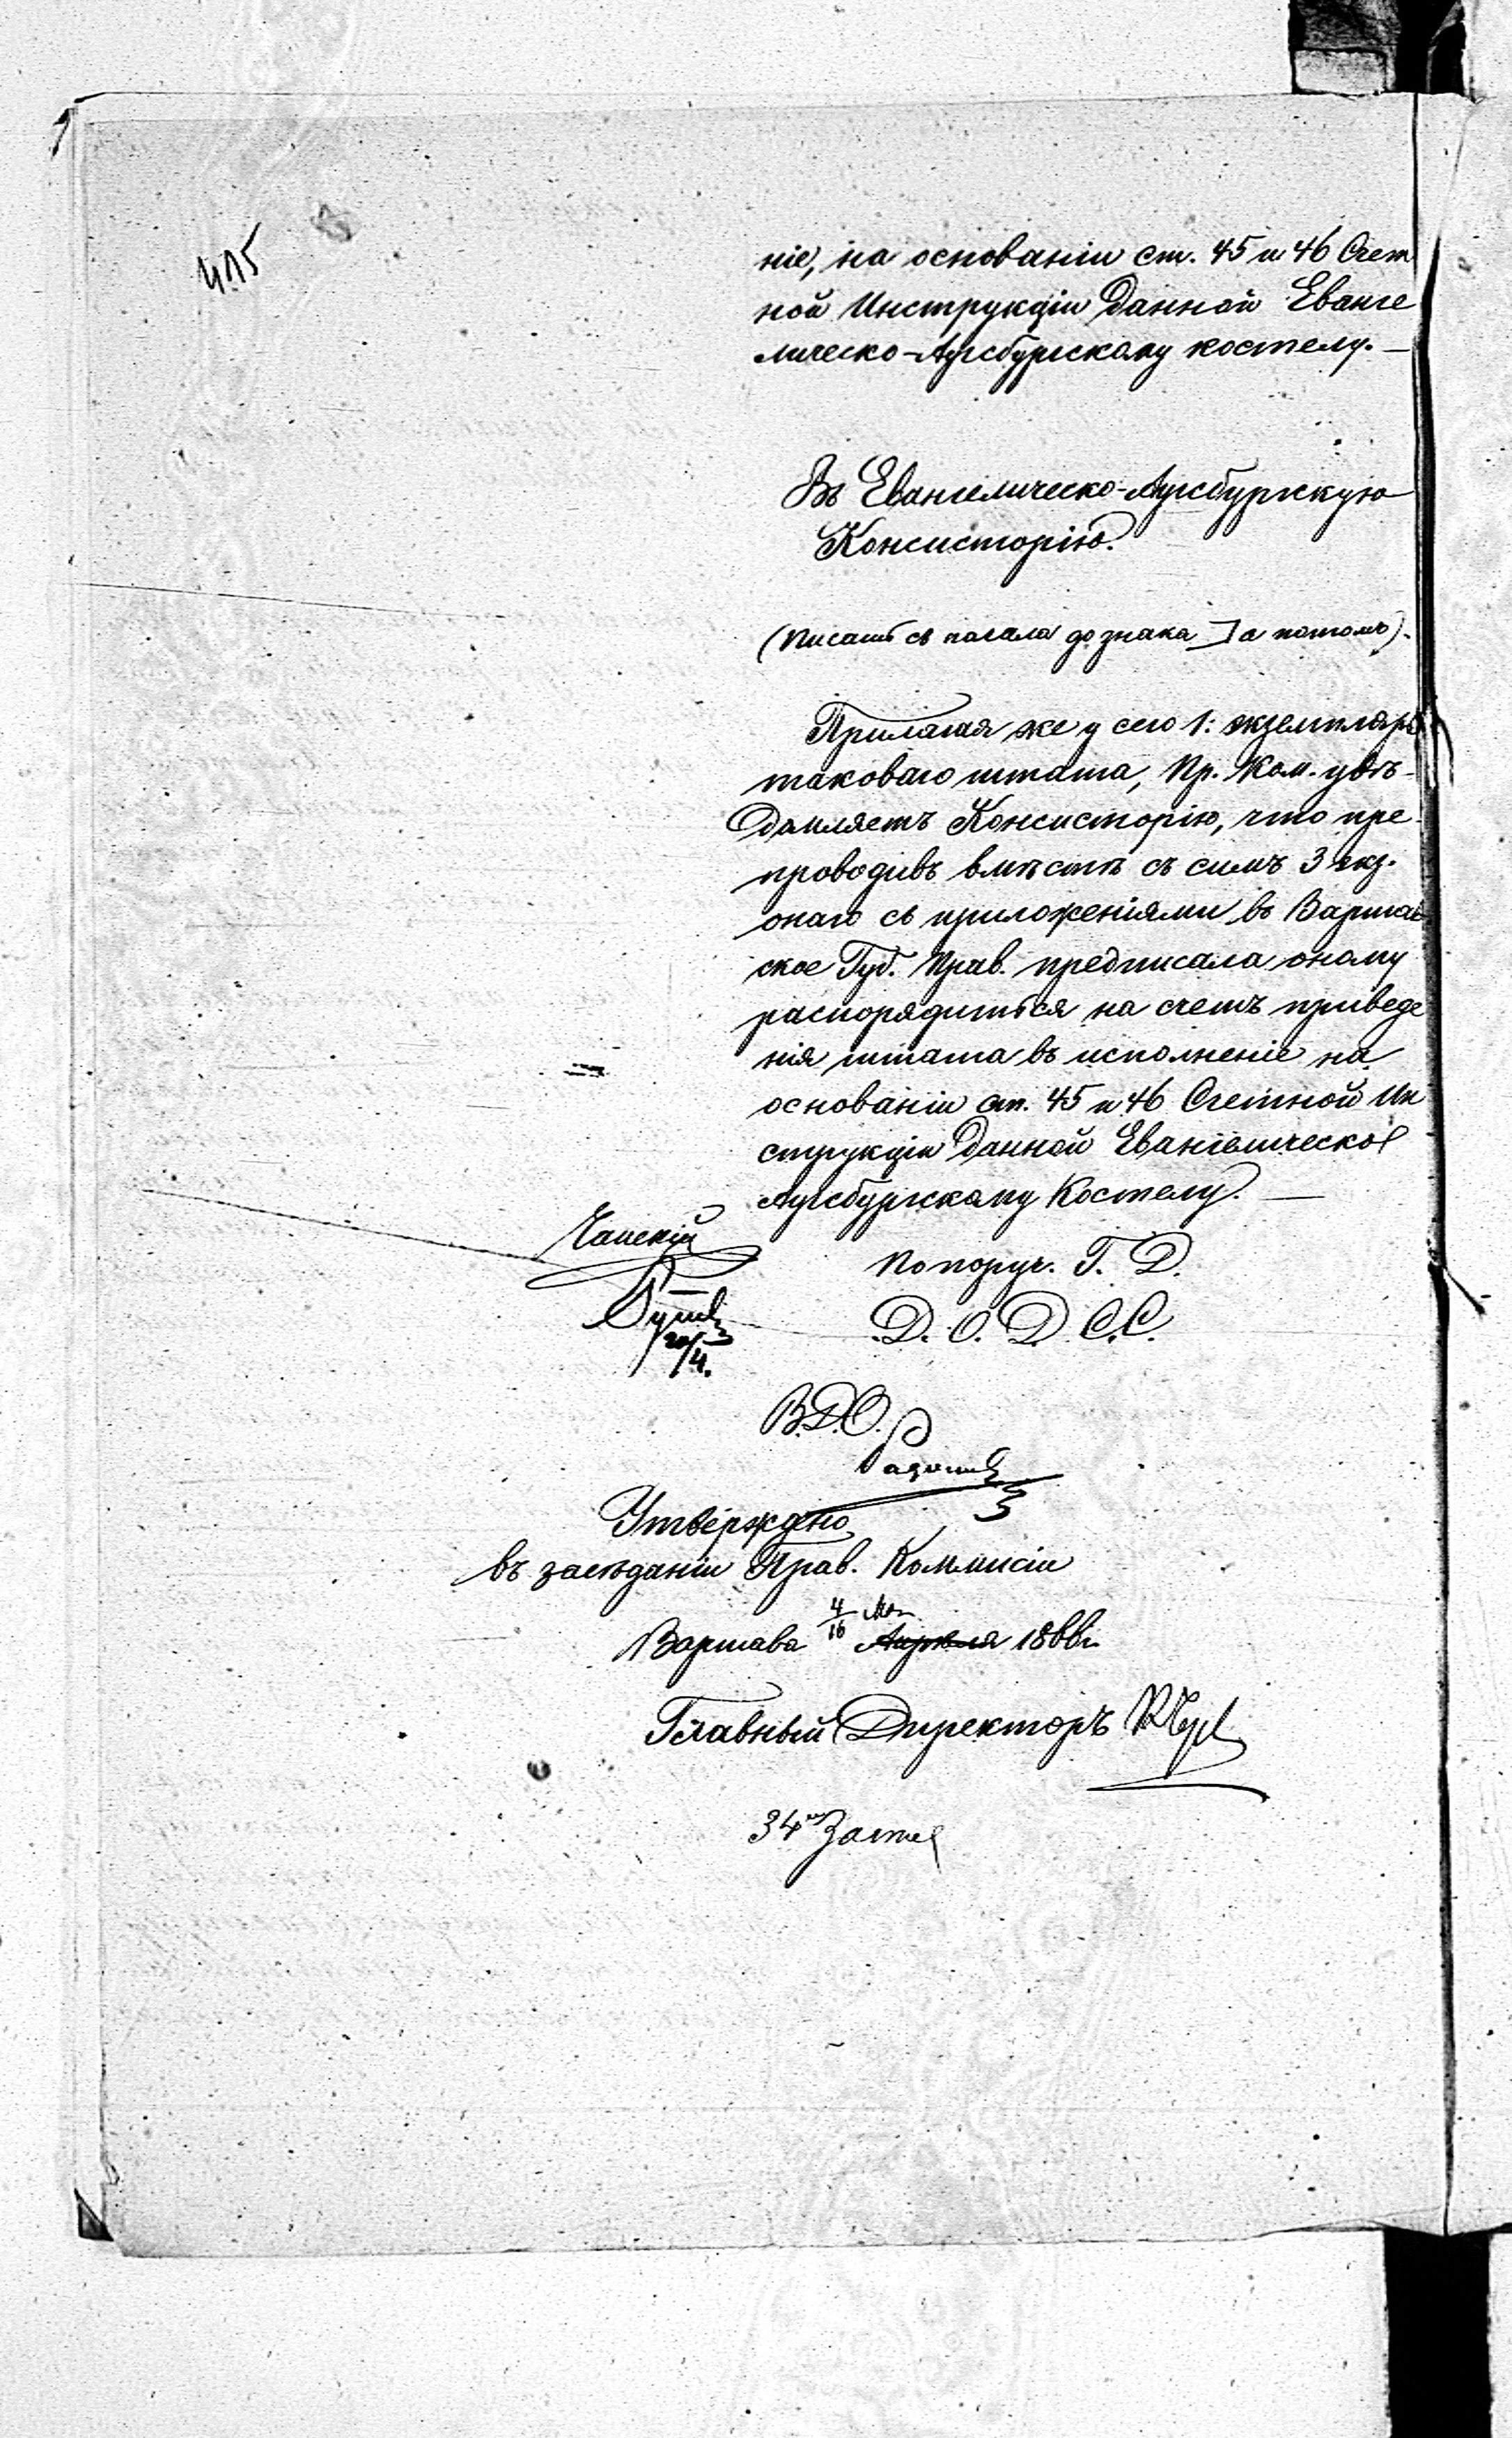 415
ніе, на основаніи ст. 45 и 46 Счет
ной Инструкціи данной Еванге
лическо-Аугсбургскому костелу. —
Въ Евангелическо-Аугсбургскую
Консисторію.
(Писать съ начала до знака ] а потомъ).
Прилагая же у сего 1: экземпляръ
таковаго штата, Пр. Ком. увѣ-
домляетъ Консисторію, что пре-
проводивъ вмѣстѣ съ симъ 3 экз.
онаго съ приложеніями въ Варшав
ское Губ. Прав. предписала оному
распорядиться на счетъ приведе
нія штата въ исполненіе на
основаніи ст. 45 и 46 Счетной Ин
струкціи данной Евангелическо
Аугсбургскому Костелу. —
По поруч. Г. Д.
Д. О. Д. С.С.
20/4.
В.Д.О.
Утверждено
въ засѣданіи Прав. Коммисіи
Варшава 4/16 Мая Апрѣля 1866 г.
Главный Директоръ
34